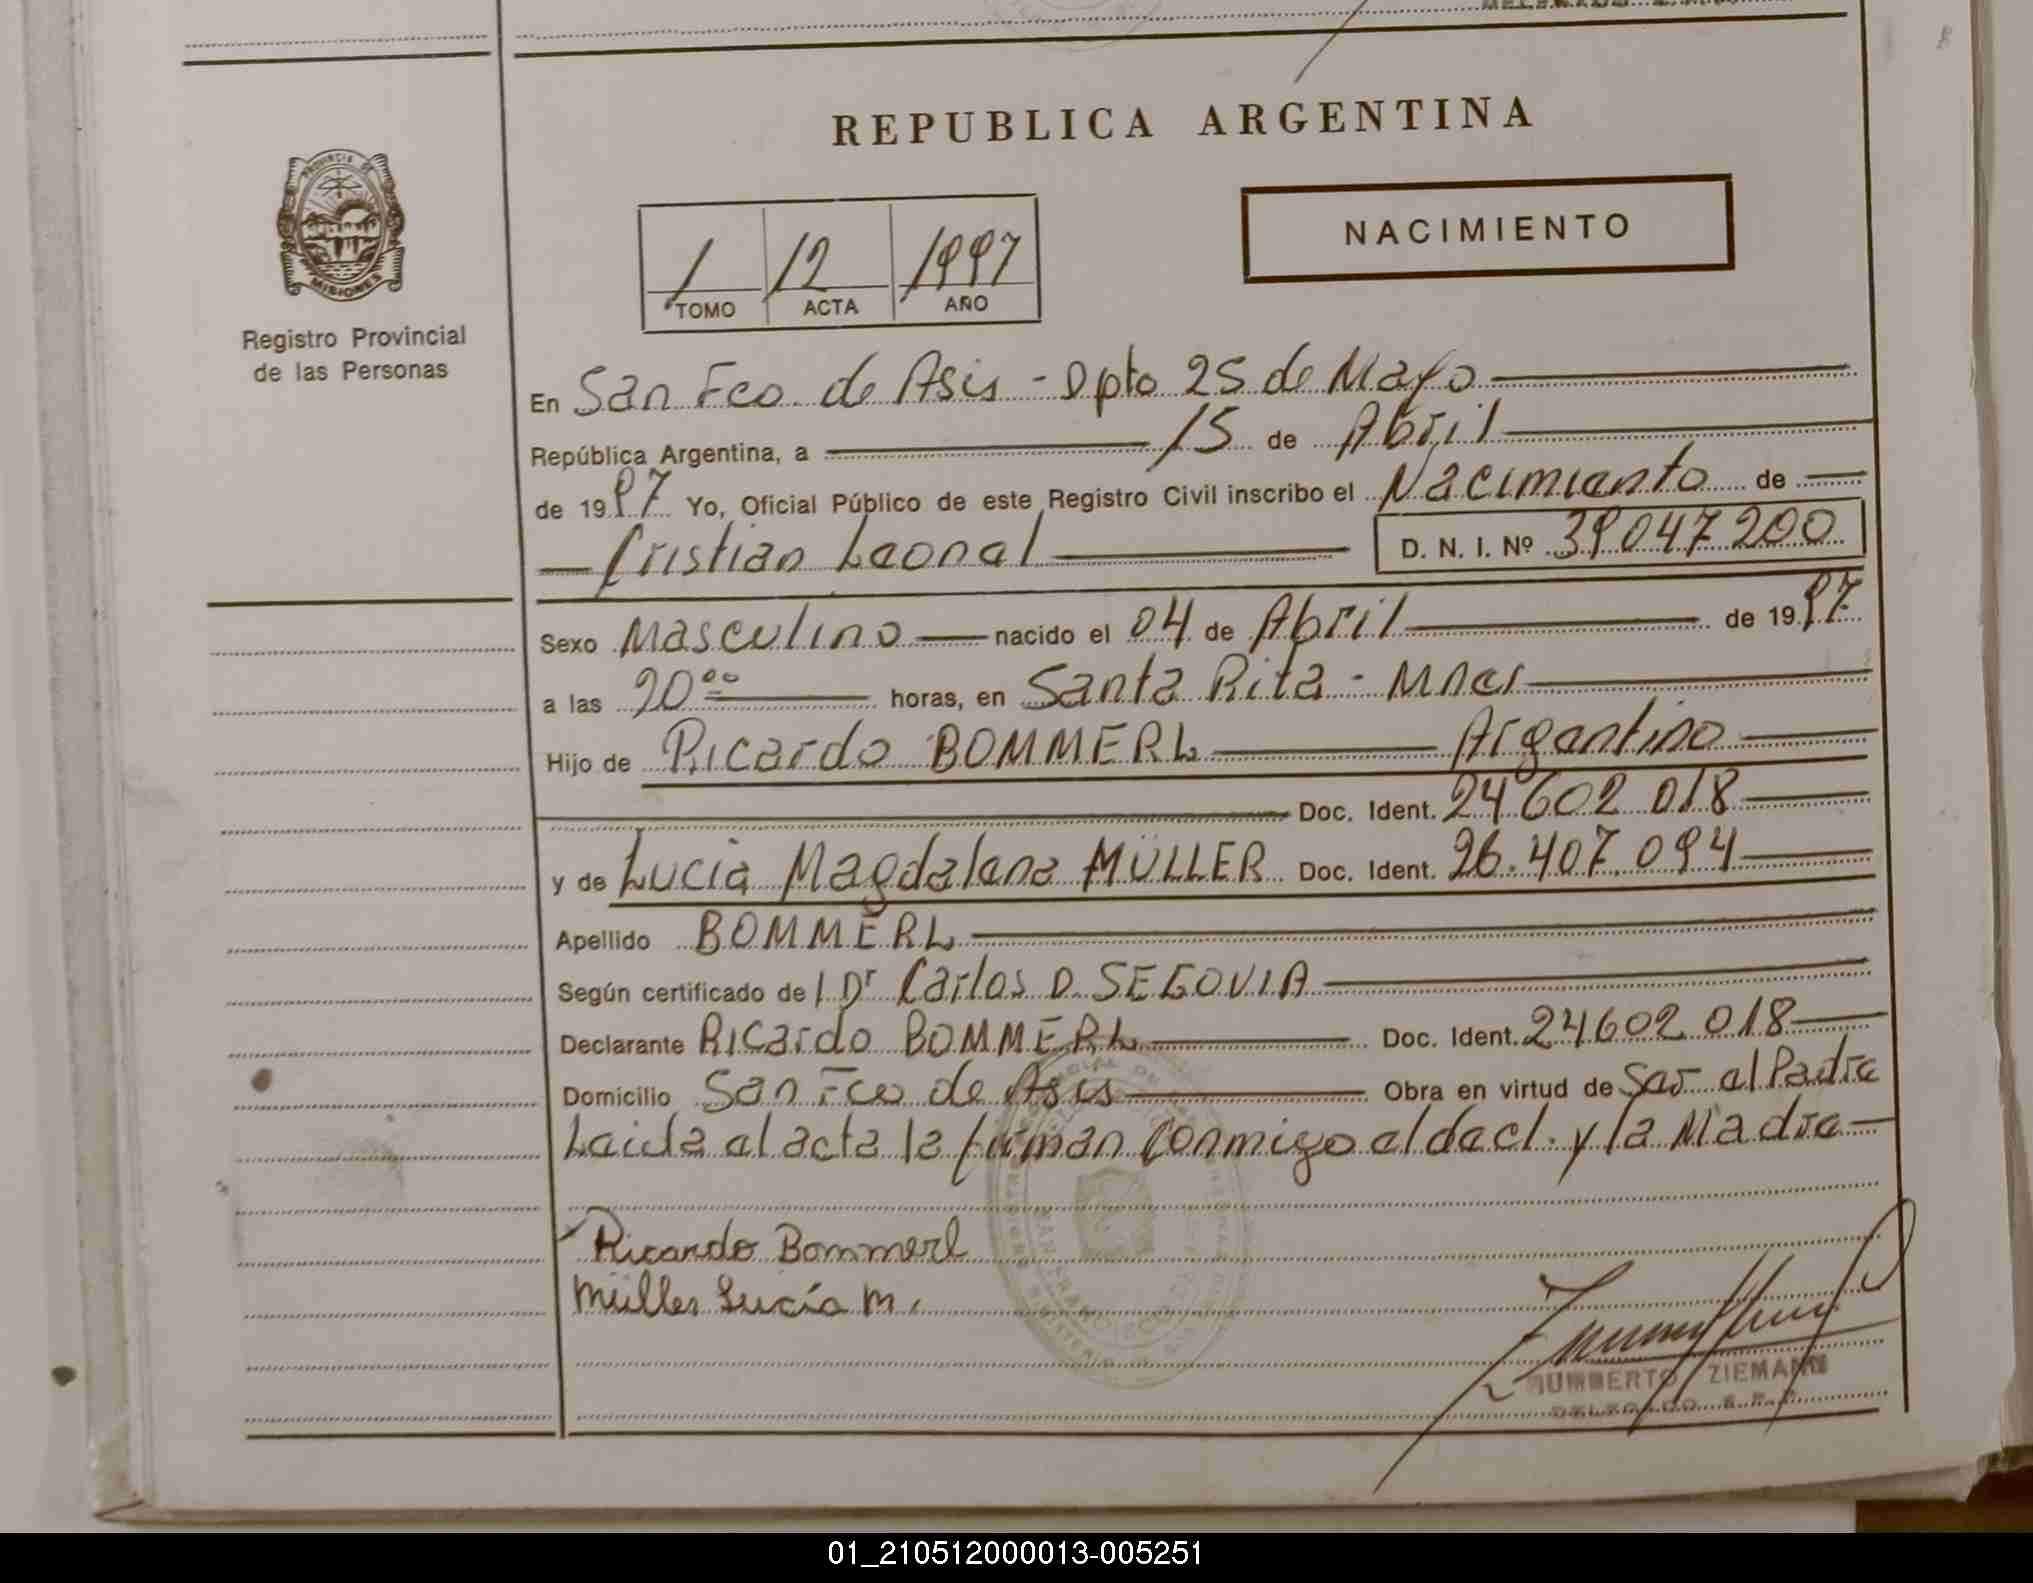 REPUBLICA ARGENTINA
PROVINCIA DE
MISIONES
Registro Provincial
de las Personas
NACIMIENTO
1 12 1997
TOMO ACTA AÑO
En San Fco. de Asis - Dpto 25 de Mayo
República Argentina, a 15 de Abril
de 1997 Yo, Oficial Público de este Registro Civil inscribo el Nacimiento de
Cristian Leonel D. N. I. Nº 39 047 200
Sexo Masculino nacido el 04 de Abril de 1997
a las 20ºº horas, en Santa Rita - Mnes
Hijo de Ricardo BOMMERL Argentino
Doc. Ident. 24 602 018
y de Lucia Magdalena MÜLLER Doc. Ident. 26.407.094
Apellido BOMMERL
Según certificado de l Dr Carlos D. SEGOVIA
Declarante Ricardo BOMMERL Doc. Ident. 24602 018
Domicilio San Fco de Asis Obra en virtud de Ser el Padre
Leida el acta la firman conmigo el decl. y la Madre
Ricardo Bommerl
Müller Lucía M.
HUMBERTO ZIEMANN
DELEGADO
01_210512000013-005251